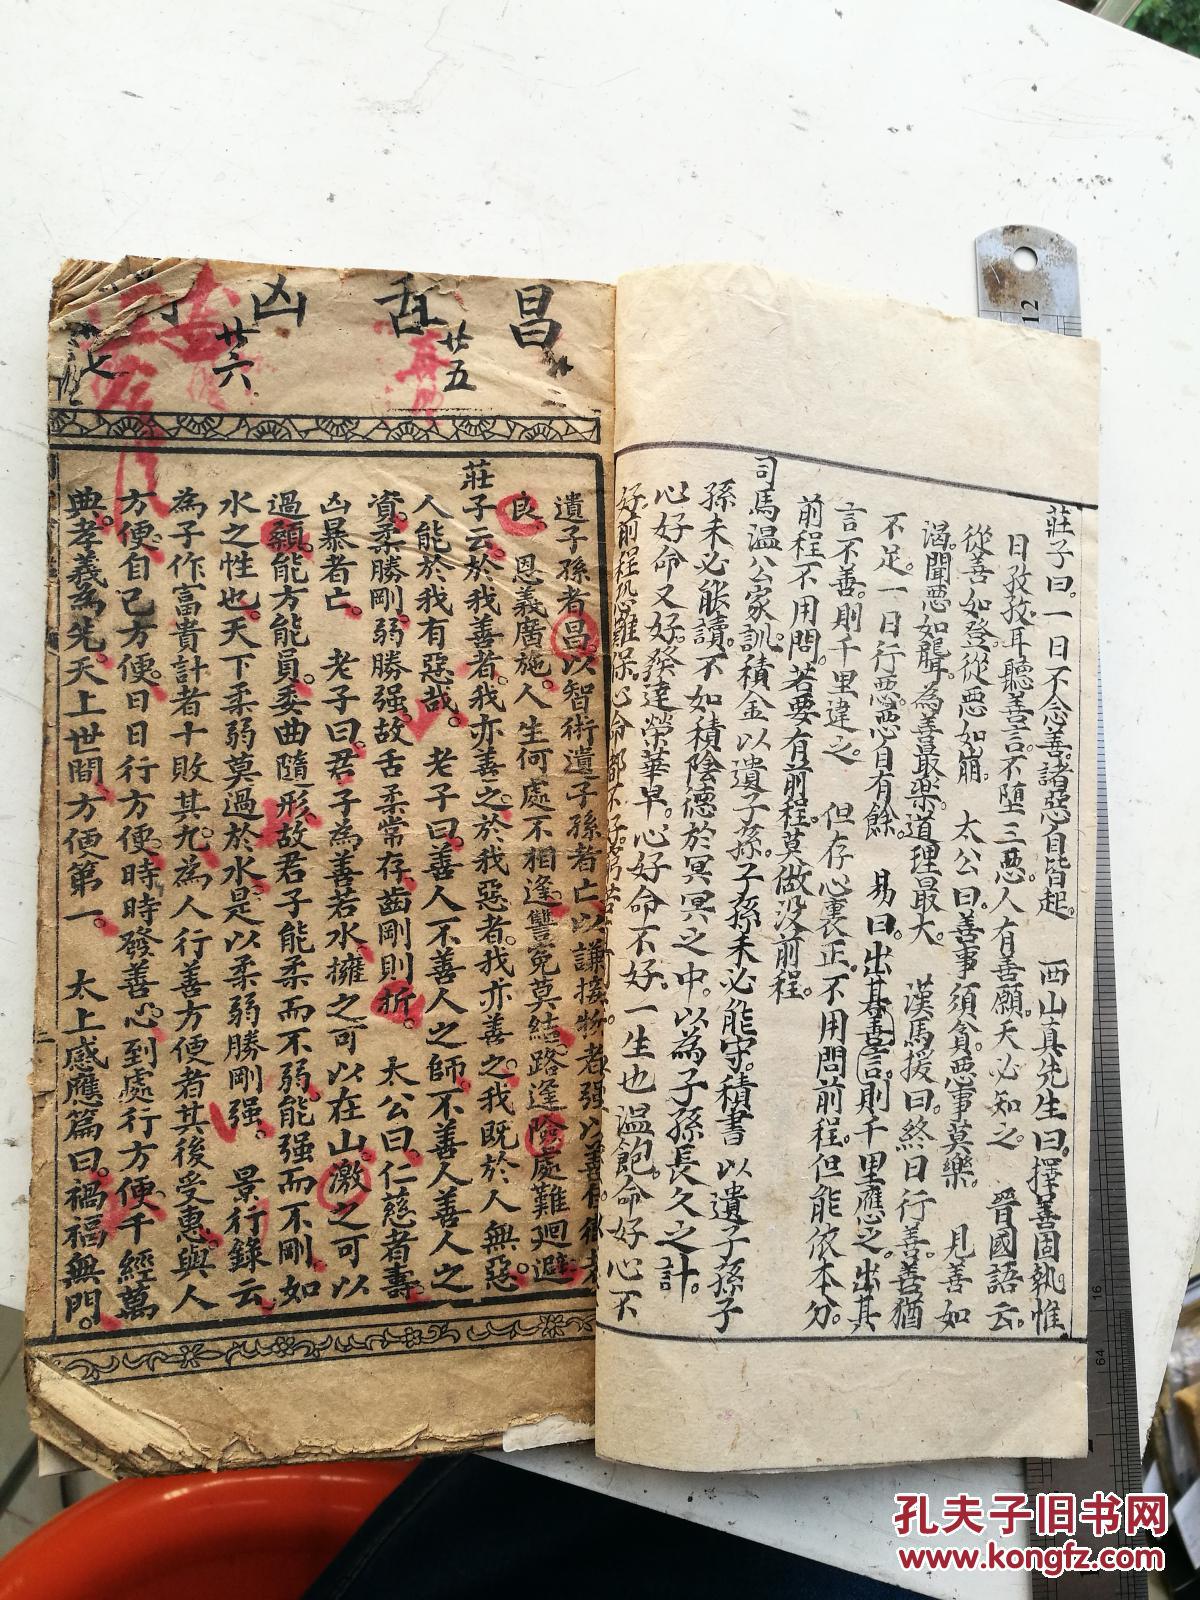 莊子曰。一日不念善。諸惡自皆起。　西山真先生曰。擇善固執惟
日孜孜。耳聽善言。不堕三惡。人有善願。天必知之。　晉國語云。
從善如登。從惡如崩。　太公曰。善事須貪。惡事莫樂。　見善如
渴。聞惡如聾。為善最樂。道理最大。　漢馬援曰。終日行善。善猶
不足。一日行惡。惡自有餘。　易曰。出其善言。則千里應之。出其
言不善。則千里違之。　但存心裏正。不用問前程。但能依本分。
前程不用問。若要有前程。莫做沒前程。
司馬温公家訓。積金以遺子孫。子孫未必能守。積書以遺子孫子
孫未必能讀。不如積陰德於冥冥之中。以為子孫長久之計。
心好命又好。發達榮華早。心好命不好。一生也温飽。命好心不
好。前程恐難保。心命都不好。
昌　舌　凶
廿五
廿六
七
遺子孫者昌。以智術遺子孫者亡。以謙接物者强。以善自
良。　恩義廣施。人生何處不相逢。讐冤莫結。路逢險處難廻避。
莊子云。於我善者。我亦善之。於我惡者。我亦善之。我既於人無惡。
人能於我有惡哉。　老子曰。善人不善人之師。不善人善人之
資。柔勝剛。弱勝强。故舌柔常存。齒剛則折。　太公曰。仁慈者壽。
凶暴者亡。　老子曰。君子為善若水。擁之可以在山。激之可以
過顙。能方能員。委曲隨形。故君子能柔而不弱。能强而不剛。如
水之性也。天下柔弱莫過於水。是以柔弱勝剛强。　景行錄云
為子作富貴計者十敗其九。為人行善方便者其後受惠。與人
方便。自己方便。日日行方便。時時發善心。到處行方便。千經萬
典。孝義為先。天上世間。方便第一。　太上感應篇曰。禍福無門。
12
16
64
孔夫子旧书网
www.kongfz.com